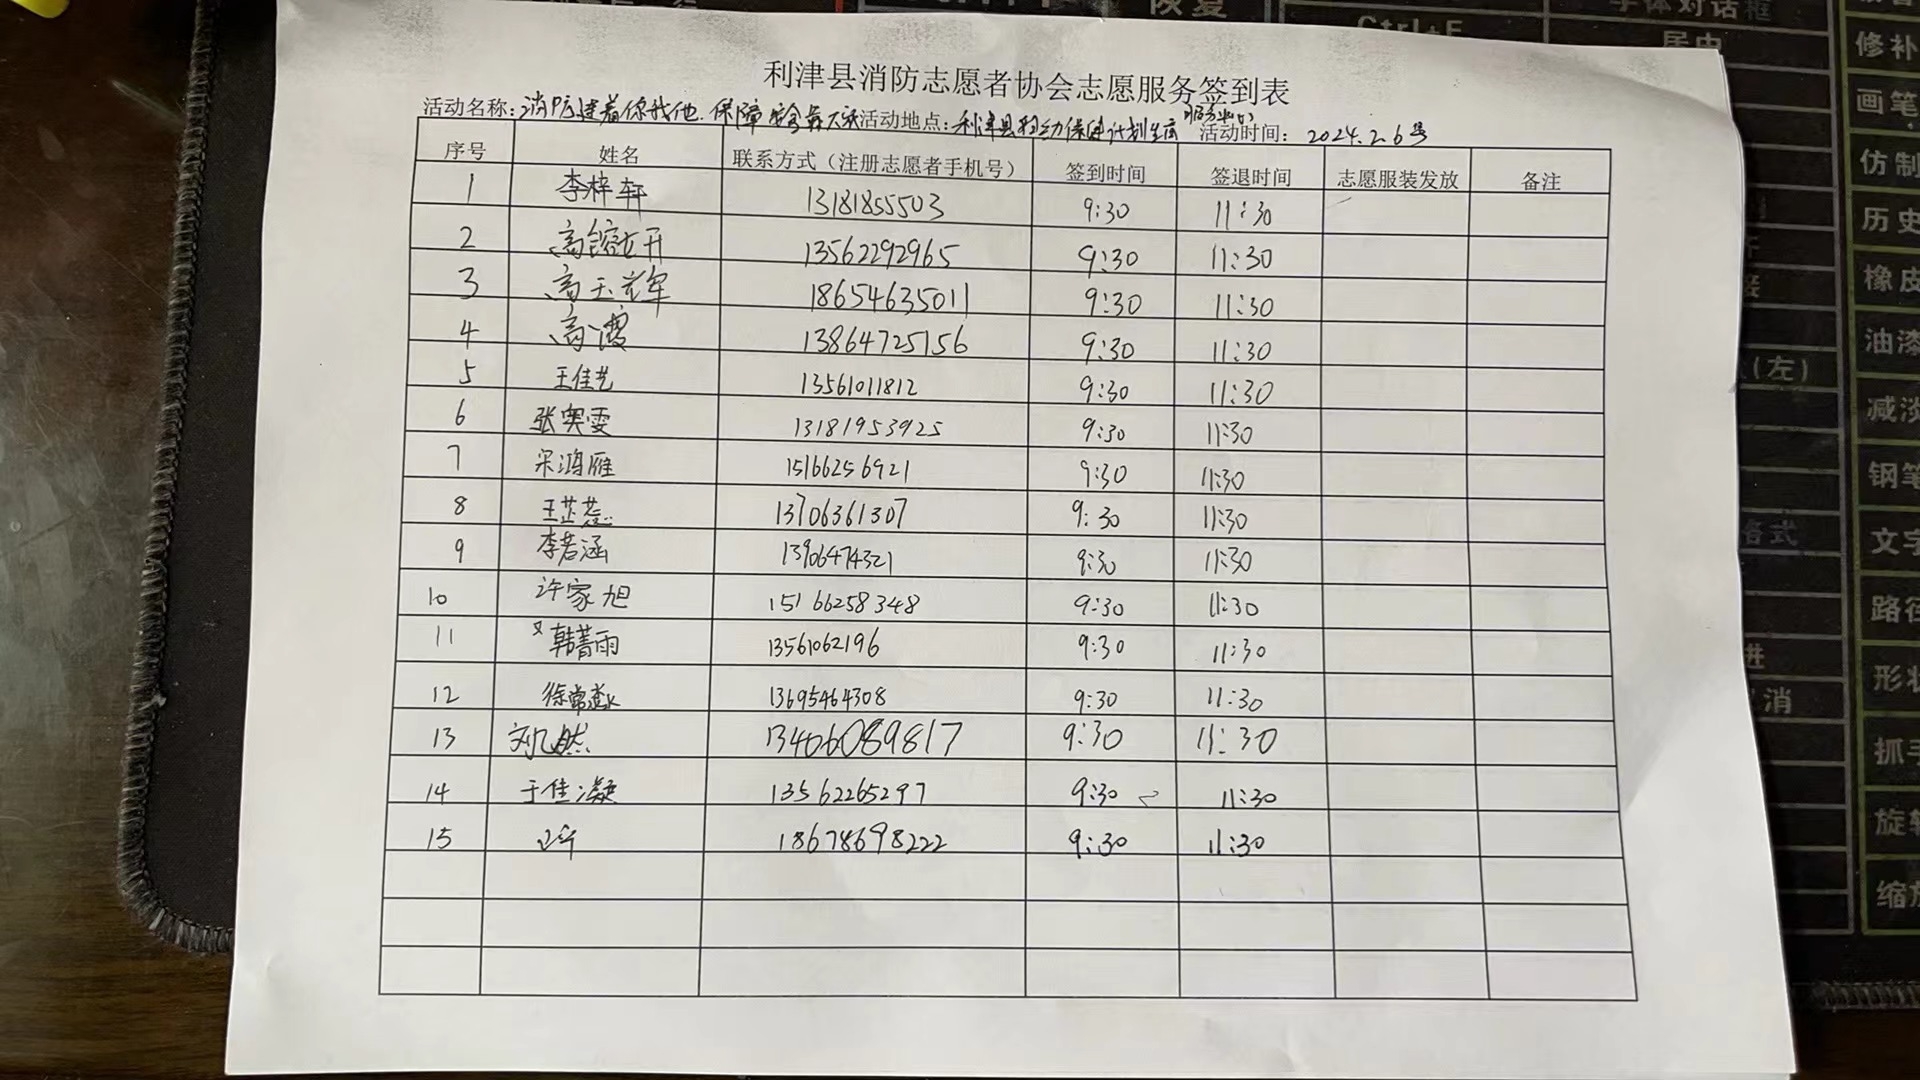 恢复
字体对话框
Ctrl+F
居中
修补
画笔
仿制
历史
橡皮
油漆
(左)
减淡
钢笔
格式
文字
路径
形状
消
抓手
旋转
缩放
利津县消防志愿者协会志愿服务签到表
活动名称:消防连着你我他.保障安全靠大家 活动地点:利津县妇幼保健计划生育服务中心 活动时间:2024.2.6号
序号 姓名 联系方式（注册志愿者手机号） 签到时间 签退时间 志愿服装发放 备注
1 李梓轩 13181855503 9:30 11:30
2 高 开 13562292965 9:30 11:30
3 高玉 军 18654635011 9:30 11:30
4 高 13864725156 9:30 11:30
5 王佳艺 13561011812 9:30 11:30
6 张奥雯 13181953925 9:30 11:30
7 宋鸿雁 15166256921 9:30 11:30
8 王芷 13706361307 9:30 11:30
9 李若涵 13906474321 9:30 11:30
10 许家旭 15166258348 9:30 11:30
11 韩菁雨 13561062196 9:30 11:30
12 徐常 13695464308 9:30 11:30
13 刘 然 13406089817 9:30 11:30
14 于佳凝 13562265297 9:30 11:30
15 18678698222 9:30 11:30